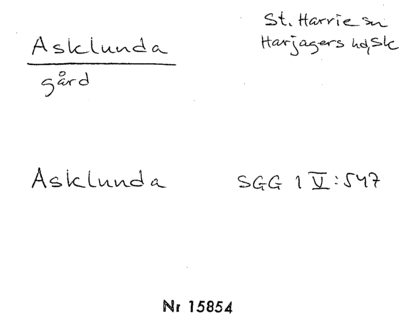 Asklunda
gård
St. Harrie sn
Harjagers hd, Sk
Asklunda SGG 1 V:547
Nr 15854